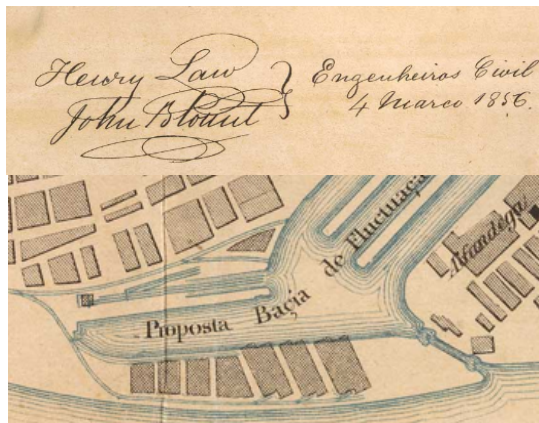 Henry Law
John Blount
Engenheiros Civil
4 Marco 1856.
Proposta Baçia de Fluctuaçã
Alfandega